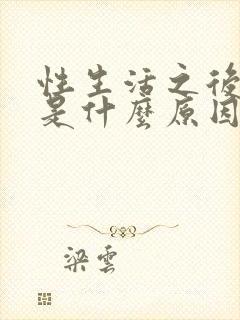 性生活之後
是什麼原因
梁雲